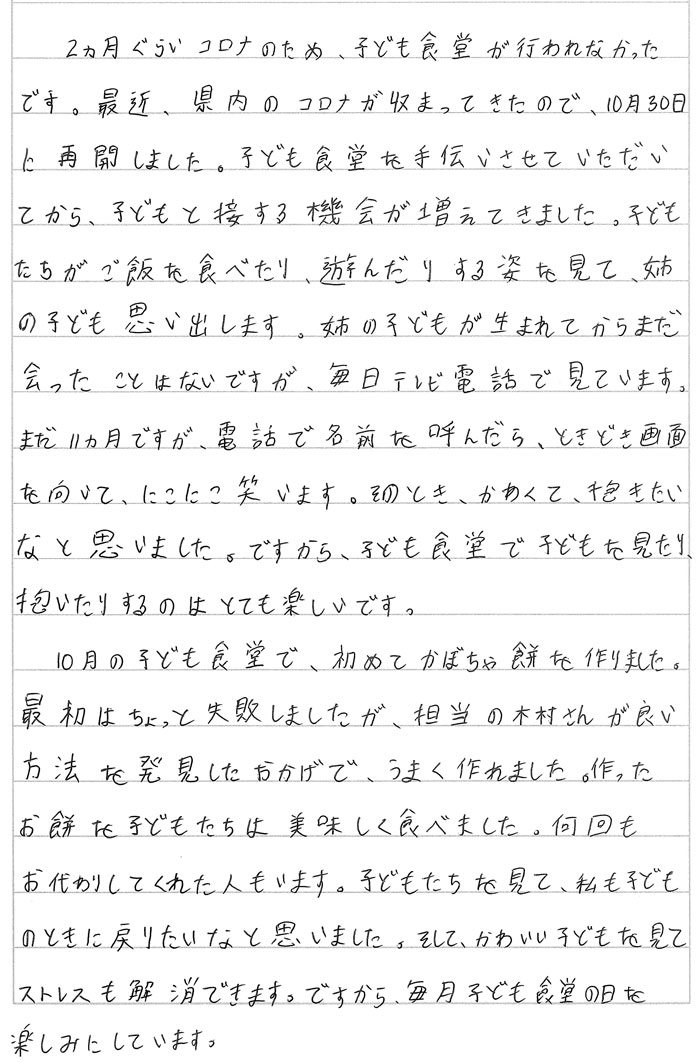 2ヵ月ぐらいコロナのため、子ども食堂が行われなかった
です。最近、県内のコロナが収まってきたので、10月30日
に再開しました。子ども食堂を手伝いさせていただい
てから、子どもと接する機会が増えてきました。子ども
たちがご飯を食べたり、遊んだりする姿を見て、姉
の子ども思い出します。姉の子どもが生まれてからまだ
会ったことはないですが、毎日テレビ電話で見ています。
まだ11ヵ月ですが、電話で名前を呼んだら、ときどき画面
を向いて、にこにこ笑います。そのとき、かわくて、抱きたい
なと思いました。ですから、子ども食堂で子どもを見たり、
抱いたりするのはとても楽しいです。
10月の子ども食堂で、初めてかぼちゃ餅を作りました。
最初はちょっと失敗しましたが、担当の木村さんが良い
方法を発見したおかげで、うまく作れました。作った
お餅を子どもたちは美味しく食べました。何回も
お代わりしてくれた人もいます。子どもたちを見て、私も子ども
のときに戻りたいなと思いました。そして、かわいい子どもを見て
ストレスも解消できます。ですから、毎月子ども食堂の日を
楽しみにしています。